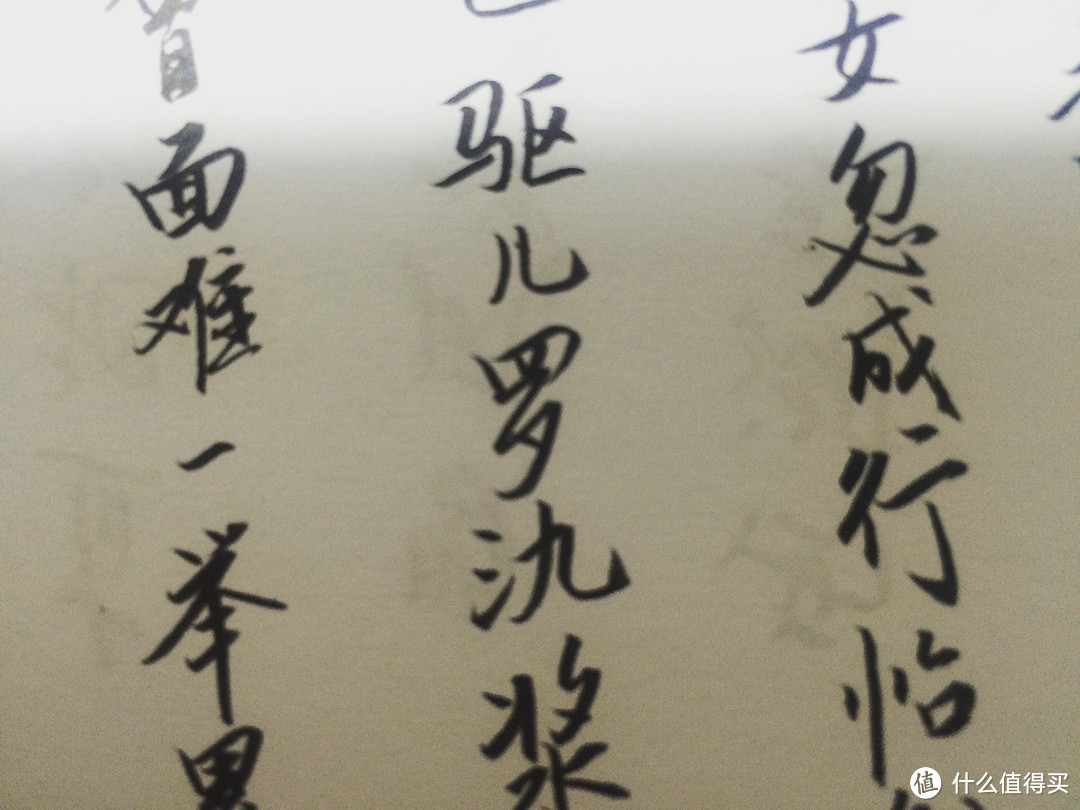 女忽成行怡
驱儿罗氿浆
面难一举累
值 什么值得买